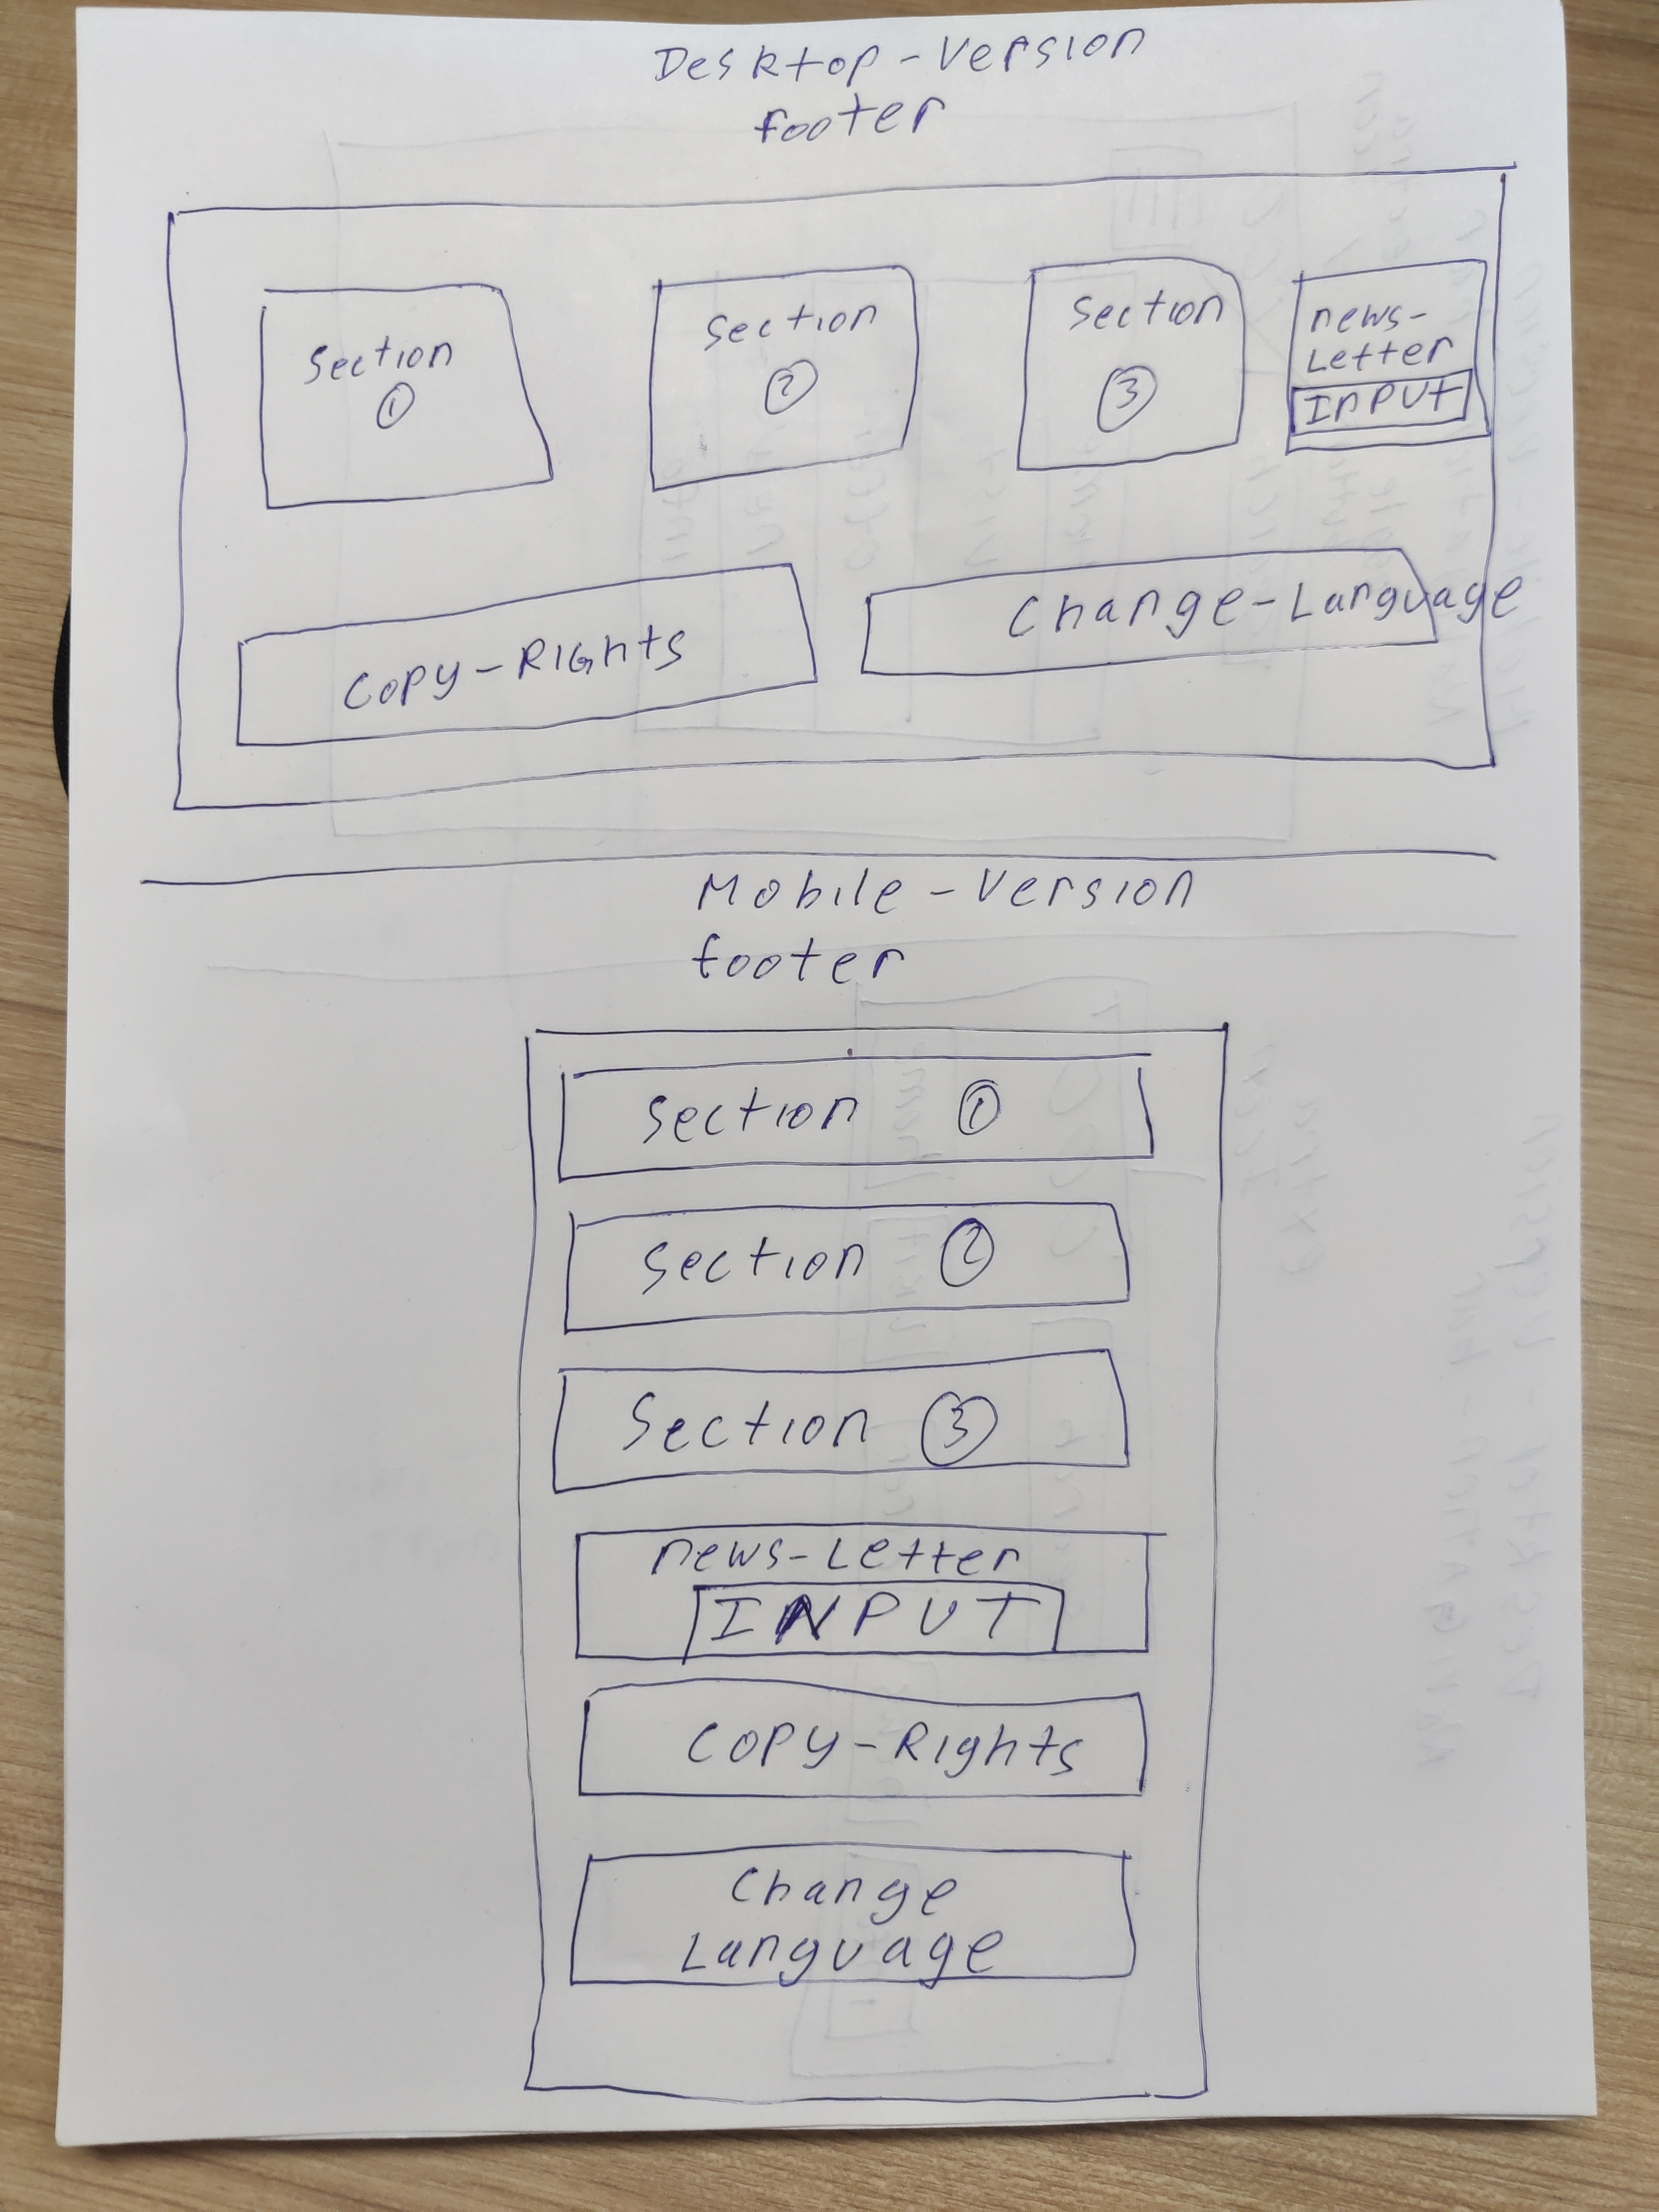 Desktop-Version
footer
Section
1
Section
2
Section
3
news-
Letter
InPUT
Copy-RIGhts
Change-Language
Mobile-Version
footer
Section 1
Section 2
Section 3
news-Letter
INPUT
Copy-Rights
Change
Language